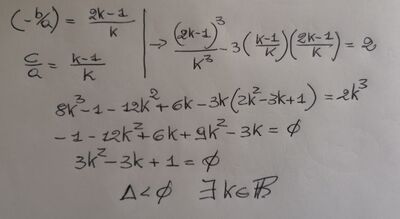 (-b/a) = (2k-1)/k → (2k-1)³/k³ - 3((k-1)/k)((2k-1)/k) = 2
c/a = (k-1)/k
8k³-1-12k²+6k-3k(2k²-3k+1) = 2k³
-1-12k²+6k+9k²-3k=∅
3k²-3k+1=∅
Δ<∅ ∃k∈ℝ